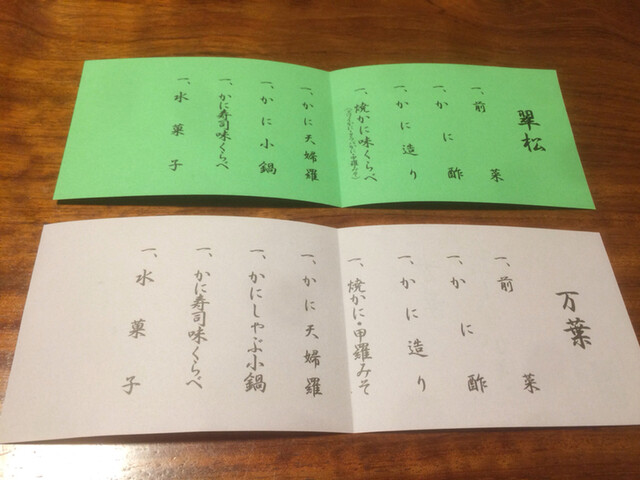 翠松
一、前菜
一、かに酢
一、かに造り
一、焼かに味くらべ
一、かに天婦羅
一、かに小鍋
一、かに寿司味くらべ
一、水菓子
万葉
一、前菜
一、かに酢
一、かに造り
一、焼かに・甲羅みそ
一、かに天婦羅
一、かにしゃぶ小鍋
一、かに寿司味くらべ
一、水菓子